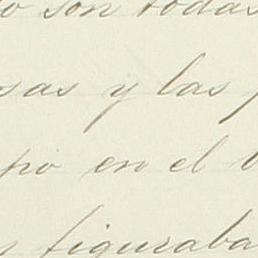 o son todas
sas y las
pio en el
figuraba